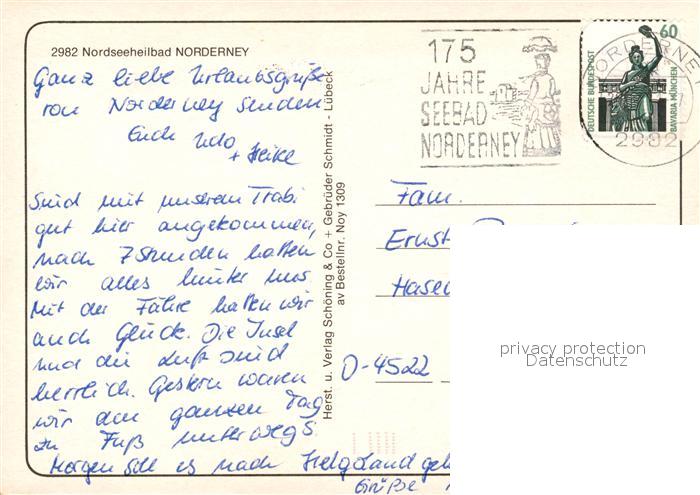 2982 Nordseeheilbad NORDERNEY
Ganz liebe Urlaubsgrüße
von Norderney senden
Euch Udo
+ Heike
Sind mit unserem Trabi
gut hier angekommen,
nach 7 Stunden hatten
wir alles hinter uns.
Mit der Fähre hatten wir
auch Glück. Die Insel
und die Luft sind
herrlich. Gestern waren
wir den ganzen Tag
zu Fuß unterwegs
Morgen soll es nach Helgoland geh
Grüße
Herst. u. Verlag Schöning & Co + Gebrüder Schmidt - Lübeck
av Bestellnr. Noy 1309
175
JAHRE
SEEBAD
NORDERNEY
60
DEUTSCHE BUNDESPOST
BAVARIA MÜNCHEN
NORDERNEY
2982
Fam.
Ernst
Hase
D-4522
privacy protection
Datenschutz